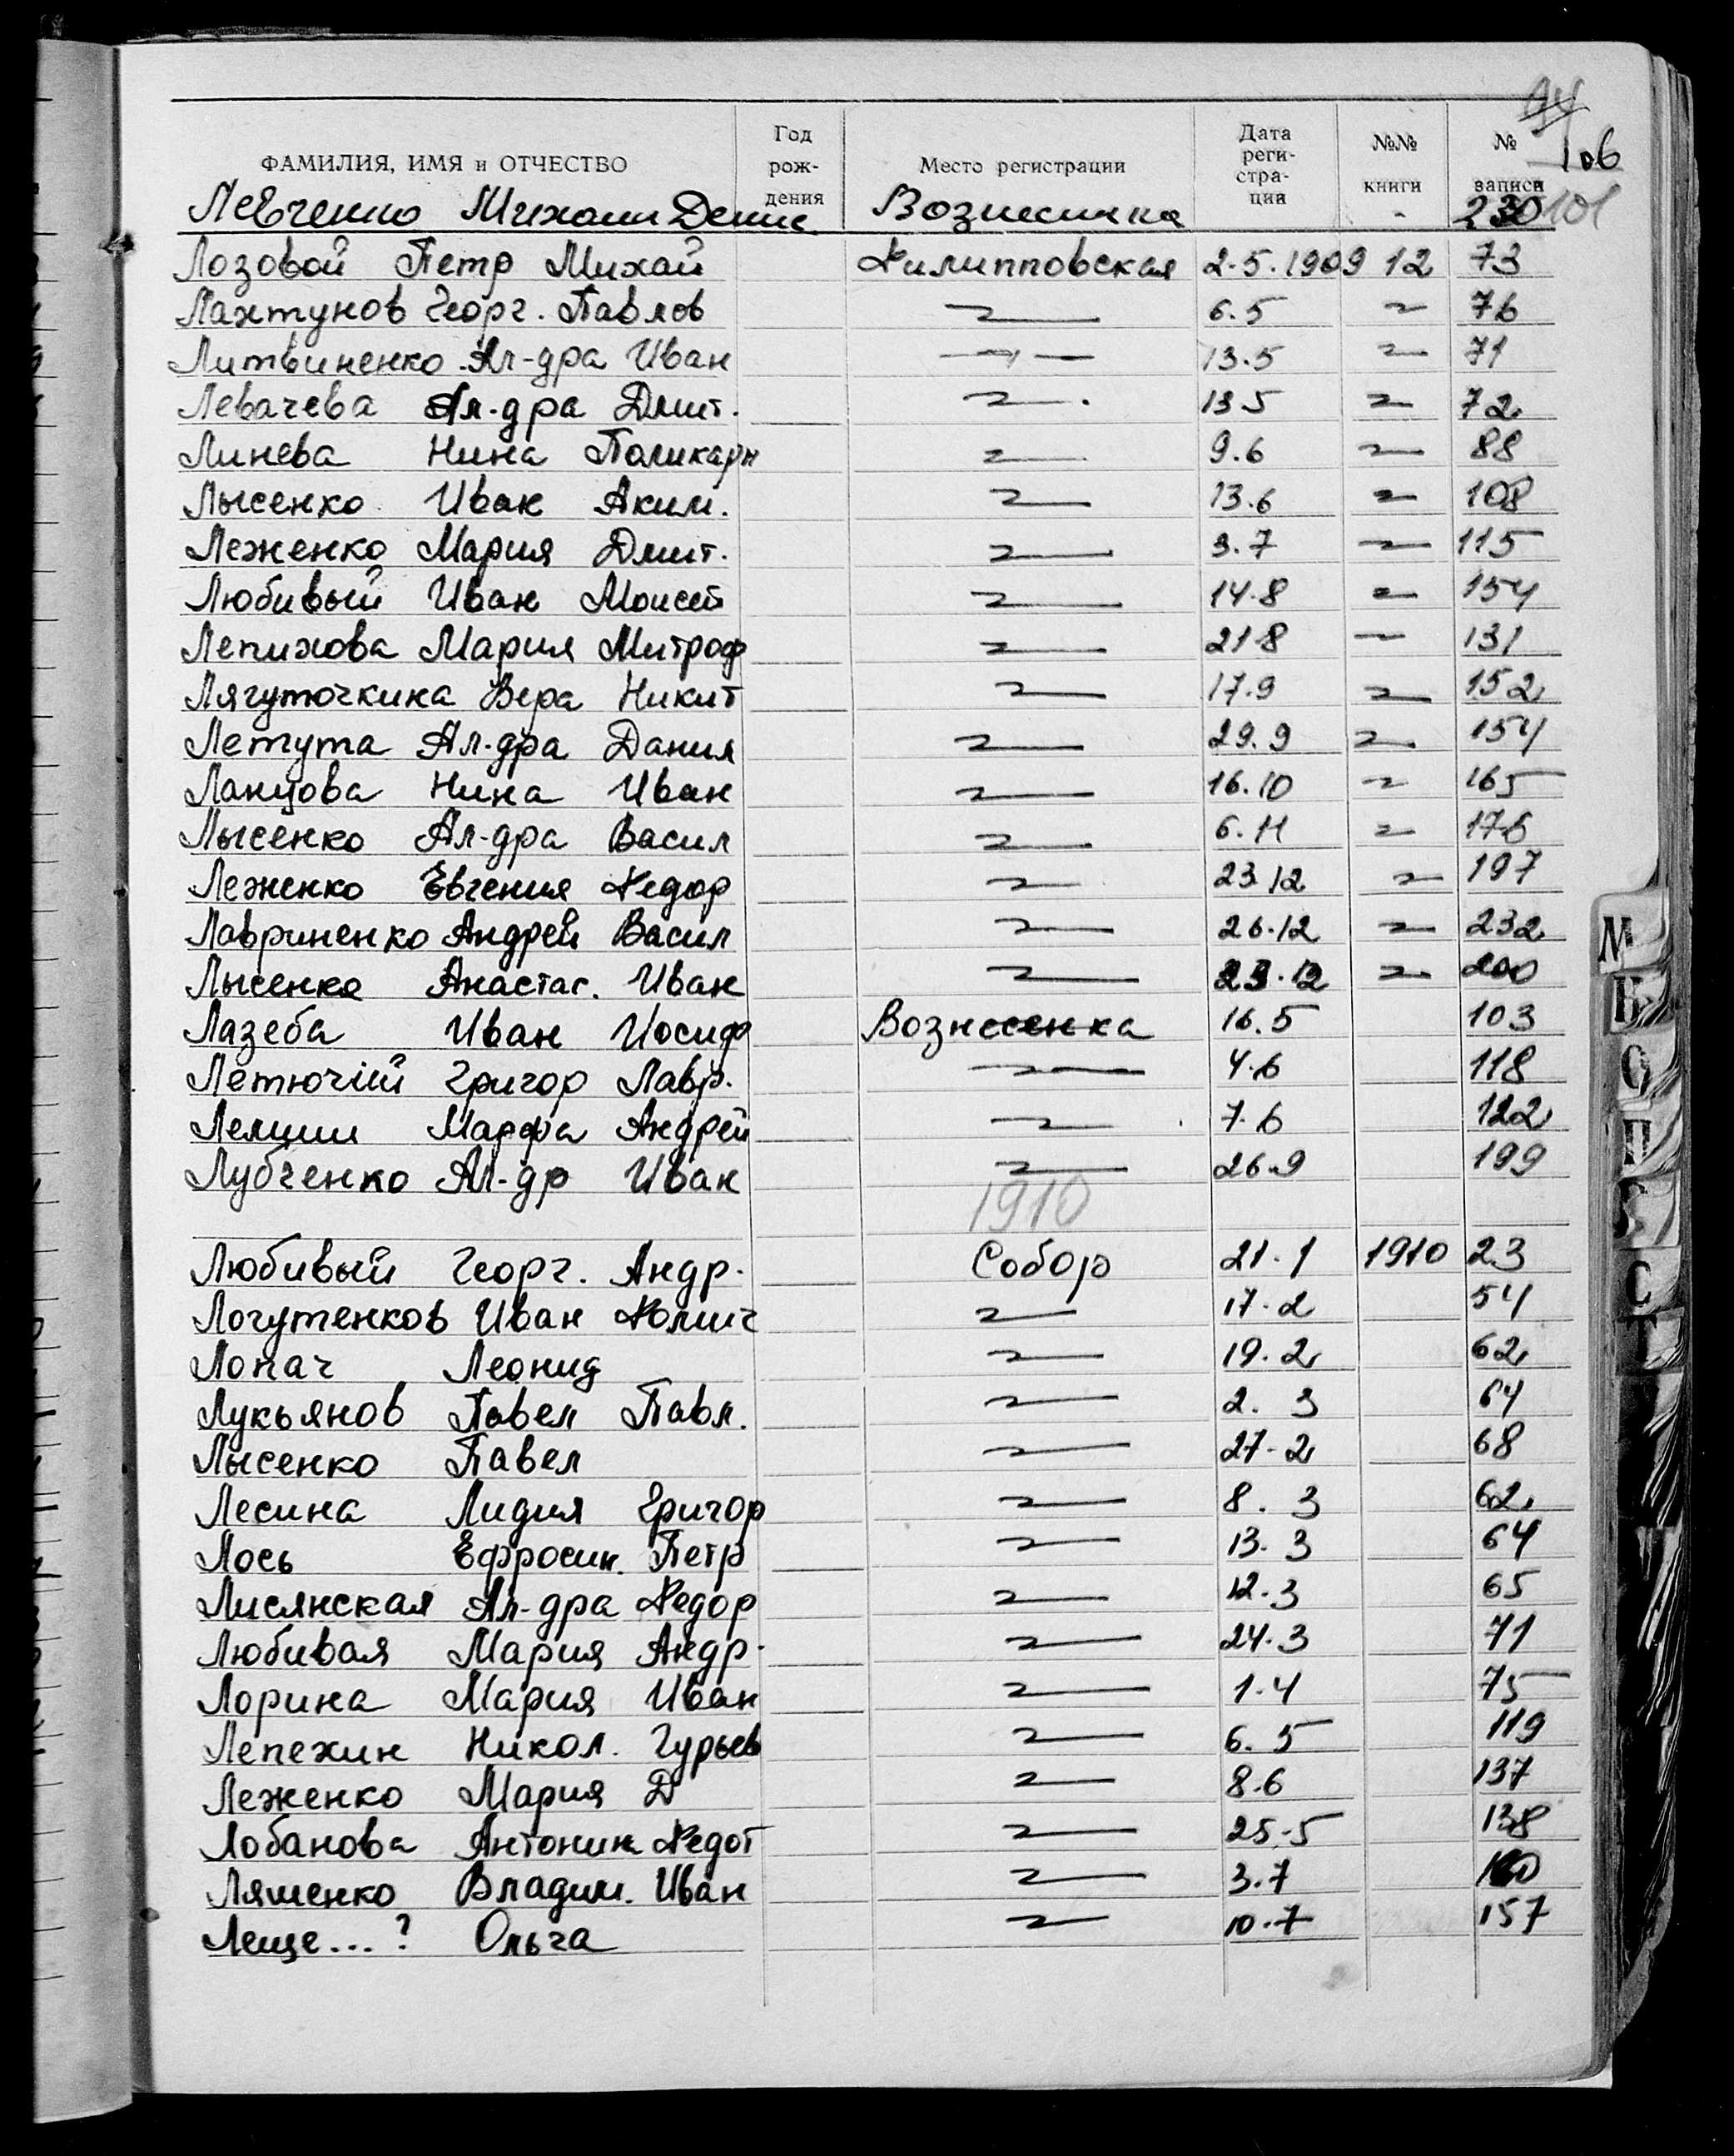 94
106
101
ФАМИЛИЯ, ИМЯ и ОТЧЕСТВО Год рождения Место регистрации Дата регистрации №№ книги № записи
Левченко Михаил Денис. Вознесинка - 230
Лозовой Петр Михай Филипповская 2.5.1909 12 73
Лахтунов Георг. Павлов 〃 6.5 〃 76
Литвиненко Ал-дра Иван 〃 13.5 〃 71
Левачева Ал-дра Дмит. 〃 13 5 〃 72
Линева Нина Поликарп 〃 9.6 〃 88
Лысенко Иван Аким. 〃 13.6 〃 108
Леженко Мария Дмит. 〃 3.7 〃 115
Любивый Иван Моисей 〃 14.8 〃 154
Лепихова Мария Митроф 〃 21 8 〃 131
Лягуточкина Вера Никит 〃 17.9 〃 152
Летута Ал-дра Данил 〃 29.9 〃 154
Ланцова Нина Иван 〃 16.10 〃 165
Лысенко Ал-дра Васил 〃 6.11 〃 176
Леженко Евгения Федор 〃 23 12 〃 197
Лавриненко Андрей Васил 〃 26.12 〃 232
Лысенко Анастас. Иван 〃 23.12 〃 200
Лазеба Иван Иосиф Вознесенка 16.5 103
Летючий Григор Лавр. 〃 4.6 118
Лемши Марфа Андрей 〃 7.6 122
Лубченко Ал-др Иван 〃 26.9 199
1910
Любивый Георг. Андр. Собор 21.1 1910 23
Логутенков Иван Фомич 〃 17.2 54
Лопач Леонид 〃 19.2 62
Лукьянов Павел Павл. 〃 2. 3 64
Лысенко Павел 〃 27-2 68
Лесина Лидия Григор 〃 8. 3 62
Лось Ефросин. Петр 〃 13. 3 64
Лисянская Ал-дра Федор 〃 12.3 65
Любивая Мария Андр. 〃 24.3 71
Лорина Мария Иван 〃 1.4 75
Лепехин Никол. Гурьев 〃 6. 5 119
Леженко Мария Д 〃 8.6 137
Лобанова Антонин Федот 〃 25.5 138
Ляшенко Владим. Иван 〃 3.7
Леще...? Ольга 〃 10.7 157
М
О
П
С
Т